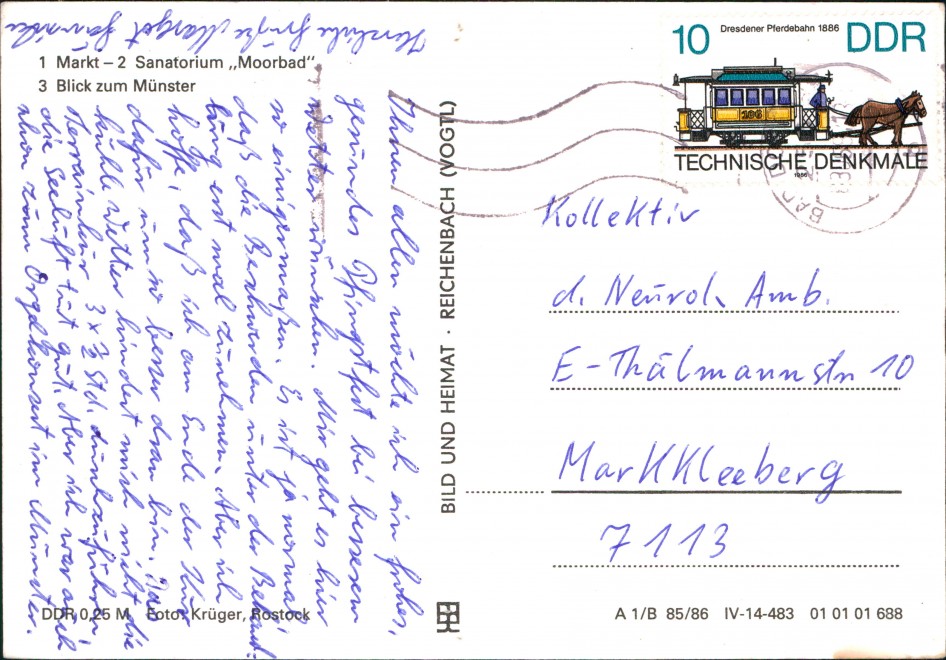 1 Markt – 2 Sanatorium „Moorbad"
3 Blick zum Münster
Ihnen allen möchte ich ein frohes,
gesundes Pfingstfest bei besserem
Wetter wünschen. Mir geht es hier
so einigermaßen. Es ist ja normal,
daß die Beschwerden unter der Behand-
lung erst mal zunehmen. Aber ich
hoffe, daß ich am Ende der Kur
dafür um so besser dran bin. Das
kühle Wetter hindert mich nicht die
Terrainkur 3 x ½ Std. durchzuführen.
die Seeluft tut gut. Aber ich war auch
schon zum Orgelkonzert im Münster.
Herzliche Grüße Margot
DDR 0,25 M Foto: Krüger, Rostock
BILD UND HEIMAT · REICHENBACH (VOGTL)
10 Dresdener Pferdebahn 1886 DDR
106
TECHNISCHE DENKMALE
1986
BAD
Kollektiv
d. Neurol. Amb.
E-Thälmannstr 10
Markkleeberg
7113
A 1/B 85/86 IV-14-483 01 01 01 688